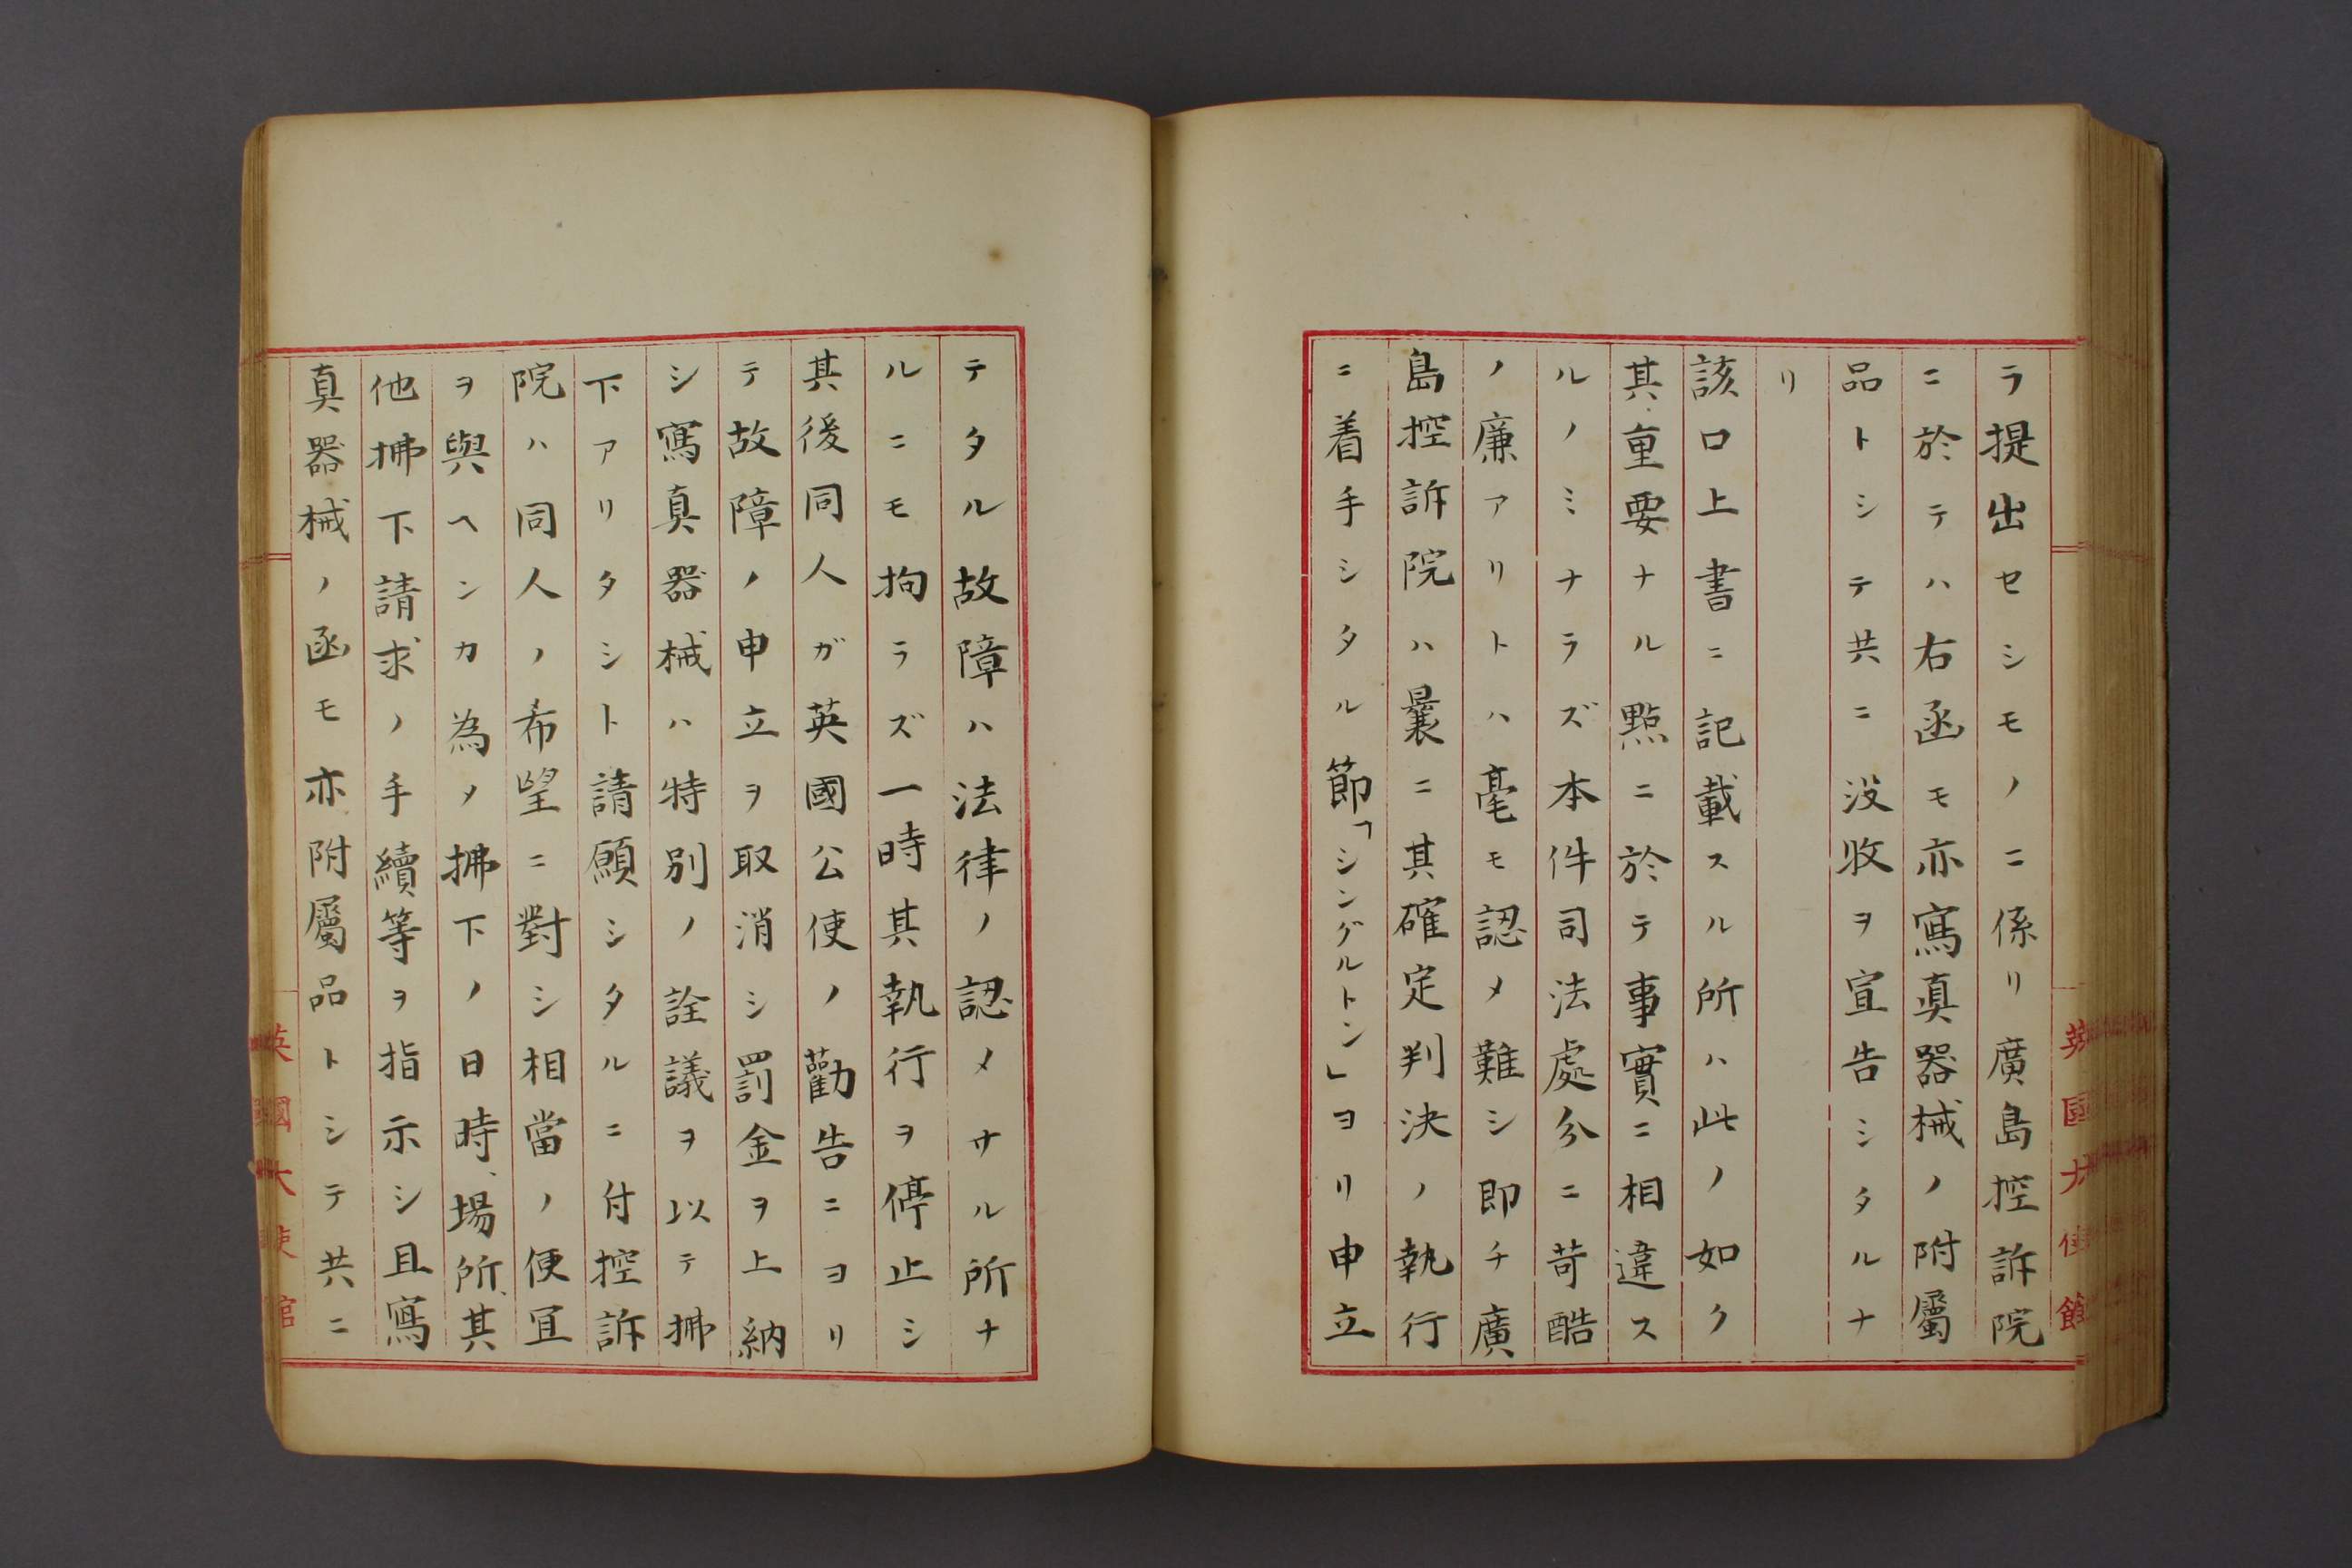 ラ提出セシモノニ係リ廣島控訴院
ニ於テハ右函モ亦寫真器械ノ附屬
品トシテ共ニ没收ヲ宣告シタルナ
リ
該口上書ニ記載スル所ハ此ノ如ク
其重要ナル點ニ於テ事實ニ相違ス
ルノミナラズ本件司法處分ニ苛酷
ノ廉アリトハ毫モ認メ難シ即チ廣
島控訴院ハ曩ニ其確定判決ノ執行
ニ着手シタル節「シングルトン」ヨリ申立
テタル故障ハ法律ノ認メサル所ナ
ルニモ拘ラズ一時其執行ヲ停止シ
其後同人ガ英國公使ノ勸告ニヨリ
テ故障ノ申立ヲ取消シ罰金ヲ上納
シ寫真器械ハ特別ノ詮議ヲ以テ拂
下アリタシト請願シタルニ付控訴
院ハ同人ノ希望ニ對シ相當ノ便宜
ヲ與ヘンカ為メ拂下ノ日時、場所、其
他拂下請求ノ手續等ヲ指示シ且寫
真器械ノ函モ亦附屬品トシテ共ニ
英國大使館